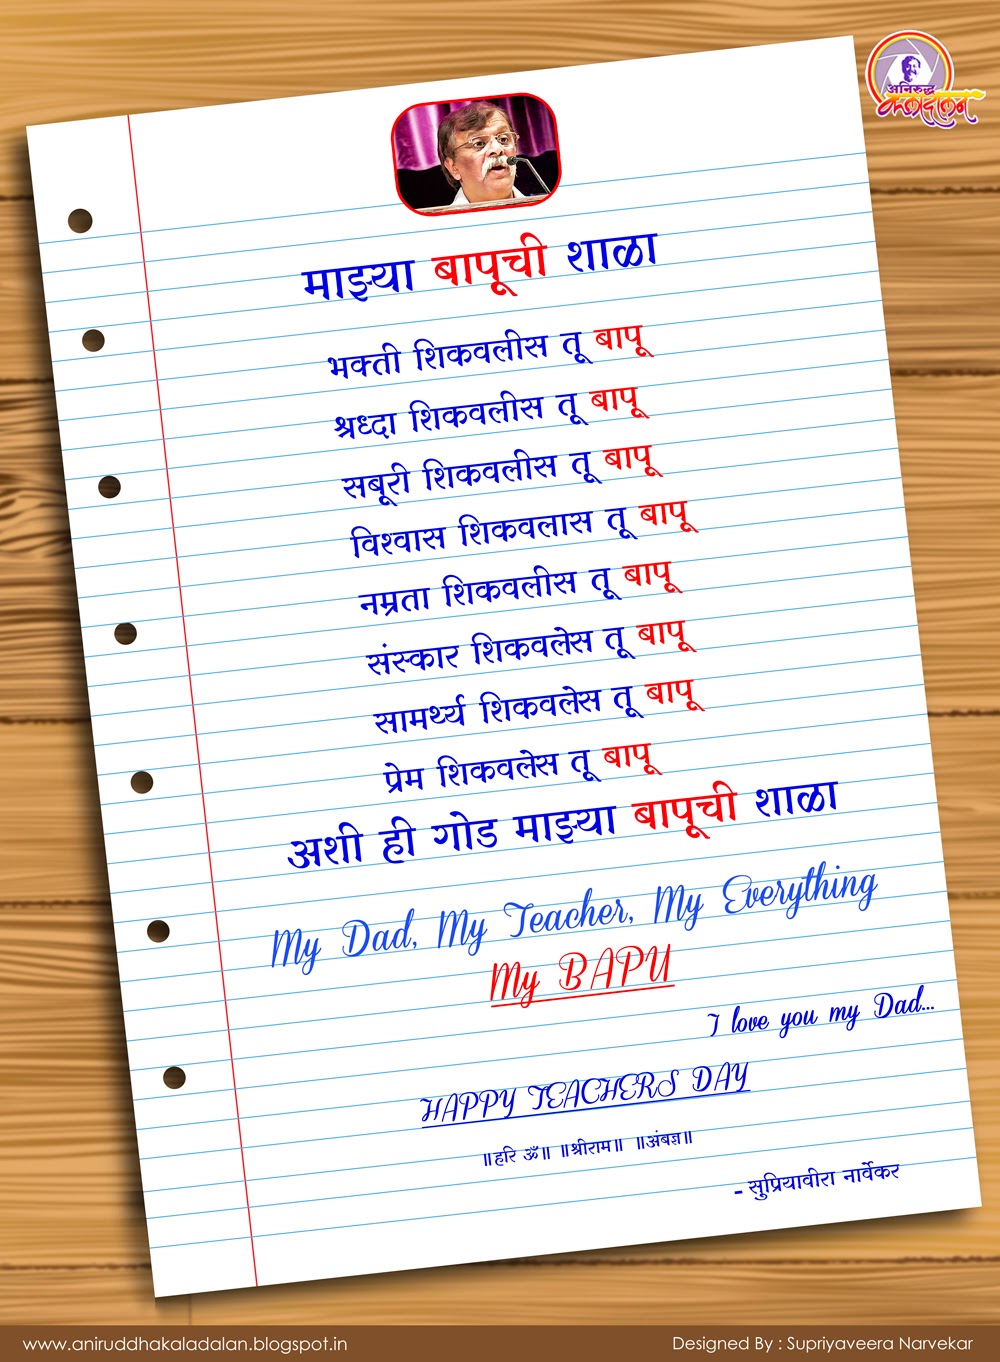 अनिरुद्ध
कलादालन
माझ्या बापूची शाळा
भक्ती शिकवलीस तू बापू
श्रध्दा शिकवलीस तू बापू
सबूरी शिकवलीस तू बापू
विश्वास शिकवलास तू बापू
नम्रता शिकवलीस तू बापू
संस्कार शिकवलेस तू बापू
सामर्थ्य शिकवलेस तू बापू
प्रेम शिकवलेस तू बापू
अशी ही गोड माझ्या बापूची शाळा
My Dad, My Teacher, My Everything
My BAPU
I love you my Dad...
HAPPY TEACHERS DAY
॥हरि ॐ॥ ॥श्रीराम॥ ॥अंबज्ञ॥
- सुप्रियावीरा नार्वेकर
www.aniruddhakaladalan.blogspot.in
Designed By : Supriyaveera Narvekar